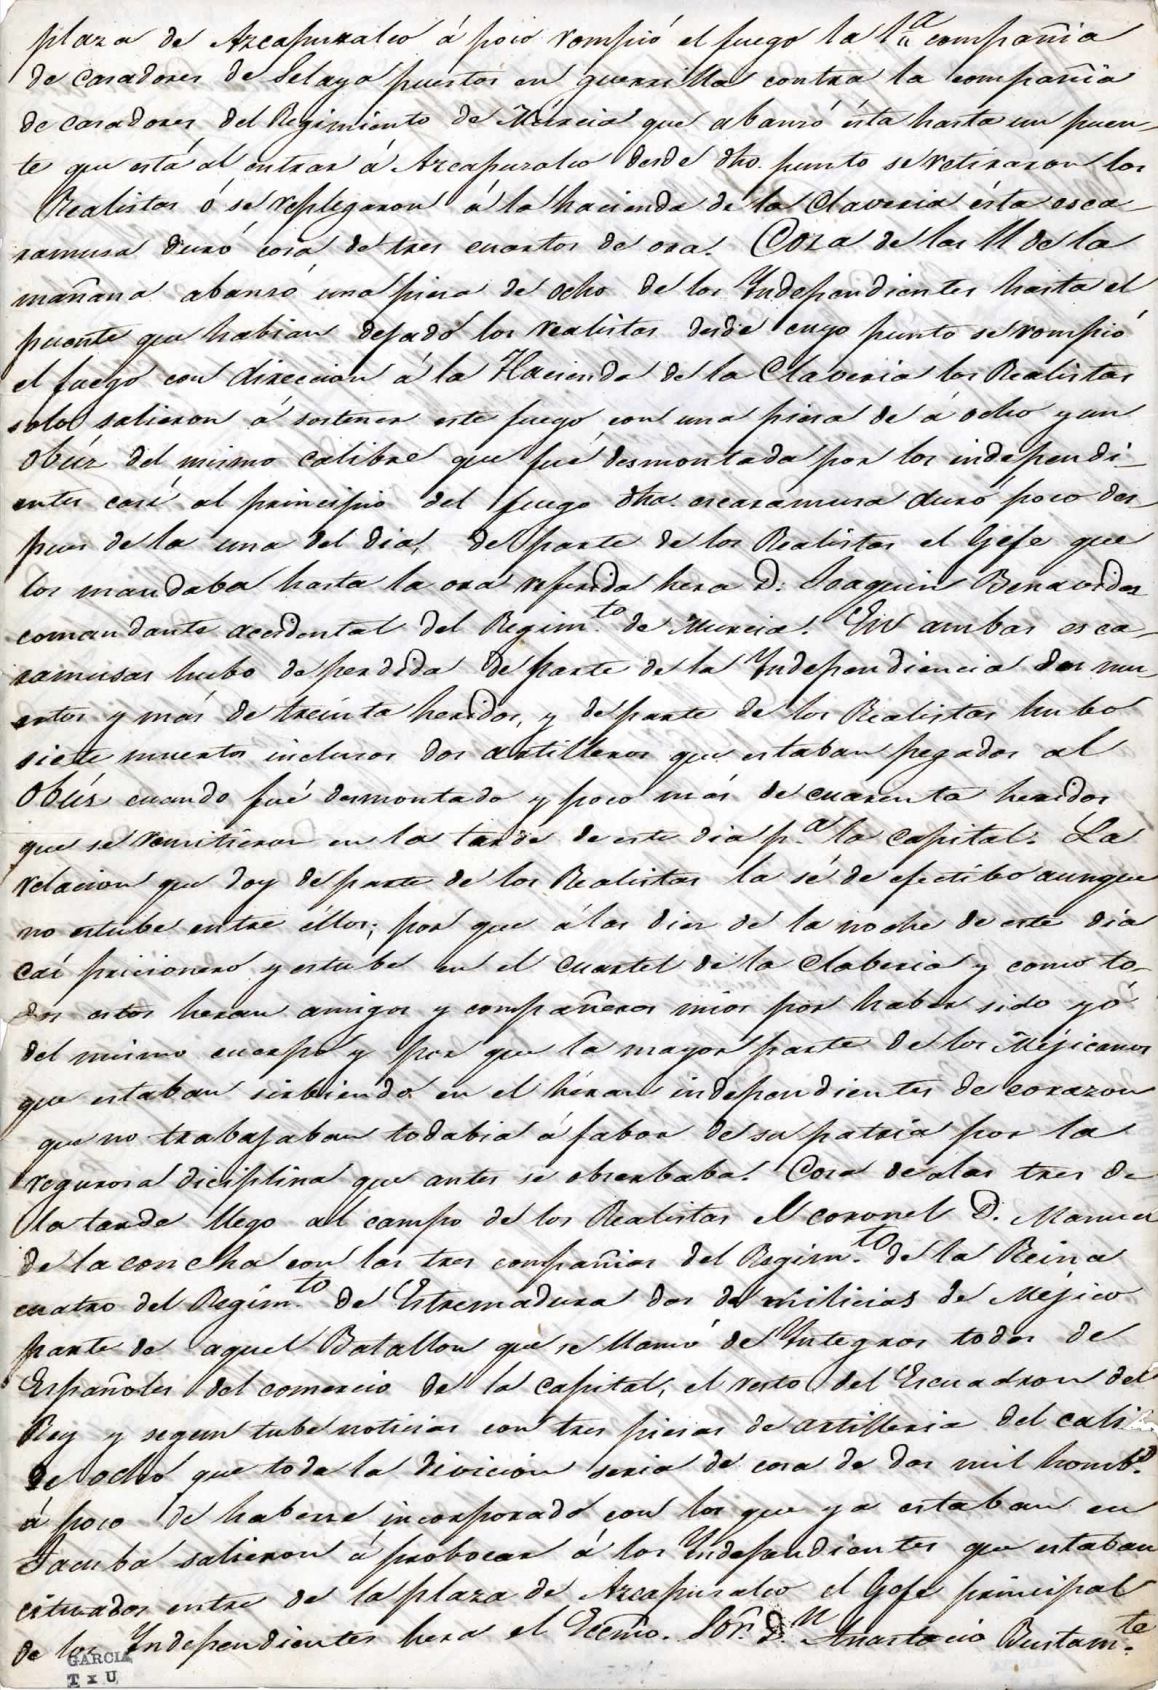 plaza de Azcapuzalco á poco rompió el fuego la 1ª compañia
de casadores de Selaya puestos en guerrilla contra la compañia
de casadores del Regimiento de Múrcia que abanzó ésta hasta un puen-
te que está al entrar á Azcapuzalco desde dho. punto se retiraron los
Realistas ó se replegaron á la hacienda de la Claveria ésta esca-
ramusa duró cosa de tres cuartos de ora. Cosa de las 11 de la
mañana abanzó una piesa de ocho de los Independientes hasta el
puente que habian dejado los realistas desde cuyo punto se rompió
el fuego con direccion á la Hacienda de la Claveria los Realistas
solo salieron á sostener este fuego con una piesa de á ocho y un
Obúz del mismo calibre que fué desmontada por los independi-
entes casi al principio del fuego dha. escaramusa duró poco des-
pues de la una del dia, de parte de los Realistas el Gefe que
los mandaba hasta la ora referida hera D. Joaquin Benavides
comandante accidental del Regim.to de Murcia. En ambas esca-
ramusas hubo de perdida de parte de la Independiencia dos mu-
ertos y más de treinta heridos, y de parte de los Realistas hubo
siete muertos inclusos dos artilleros que estaban pegados al
Obúz cuando fué desmontado y poco más de cuarenta heridos
que se remitieron en la tarde de este dia p.a la capital. La
relacion que doy de parte de los Realistas la sé de efectibo aunque
no estube entre éllos; por que á las dies de la noche de este dia
caí pricionero y estube en el cuartel de la Claberia y como to-
dos estos heran amigos y compañeros mios por haber sido yó
del mismo cuerpo y por que la mayor parte de los Méjicanos
que estaban sirbiendo en el héran independientes de corazon
que no trabajaban todabia á fabor de su patria por la
regurosa diciplina que antes se obserbaba. Cosa de las tres de
la tarde llego al campo de los Realistas el coronel D. Manuel
de la concha con las tres compañias del Regim.to de la Reina
cuatro del Regim.to de Estremadura dos de milicias de Méjico
parte de aquel Batallon que se llamó de Integros todos de
Españoles del comercio de la capital, el resto del Escuadron del
Rey y segun tube noticias con tres piesas de artilleria del calib
de ocho que toda la divicion seria de cosa de dos mil homb.s
á poco de haberse incorporado con los que ya estaban en
Tacuba salieron á probocar á los Independientes que estaban
cituados entre de la plaza de Azcapusalco el Gefe principal
de los Independientes hera el Ecemo. Sór. D.n Anastacio Bustam.te
GARCIA
T x U